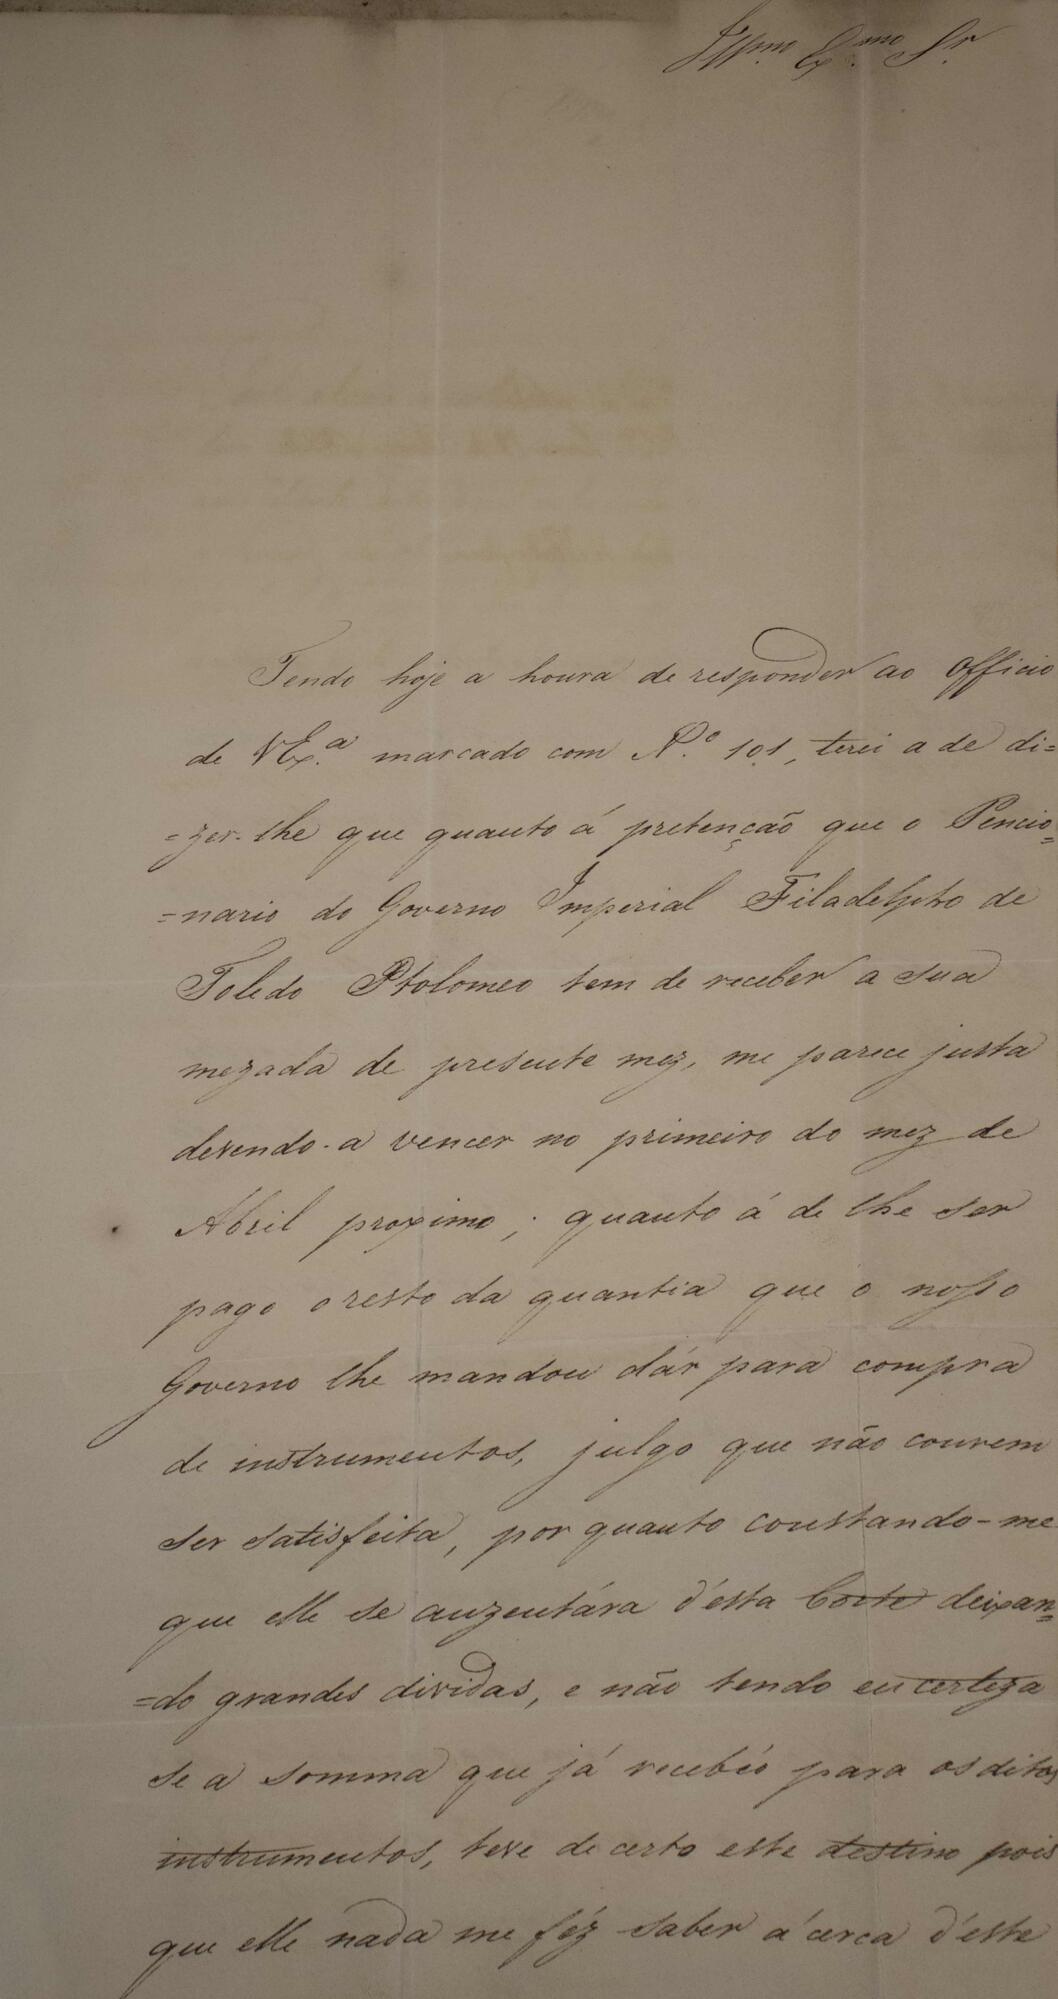 Illmo Exmo Sr
Tendo hoje a honra de responder ao Officio
de VEx.a marcado com N.o 101, terei a de di=
=zer-lhe que quanto á pretenção que o Pencio=
=nario do Governo Imperial Filadelpho de
Toledo Ptolomeo tem de receber a sua
mezada de presente mez, me parece justa
devendo-a vencer no primeiro do mez de
Abril proximo; quanto á de lhe ser
pago o resto da quantia que o nosso
Governo lhe mandou dár para compra
de instrumentos, julgo que não convem
ser satisfeita, por quanto constando-me
que elle se auzentára d'esta Corte deixan=
=do grandes dividas, e não tendo eu certeza
se a somma que já recebêo para os ditos
instrumentos, teve de certo este destino pois
que elle nada me fêz saber á cerca d'este